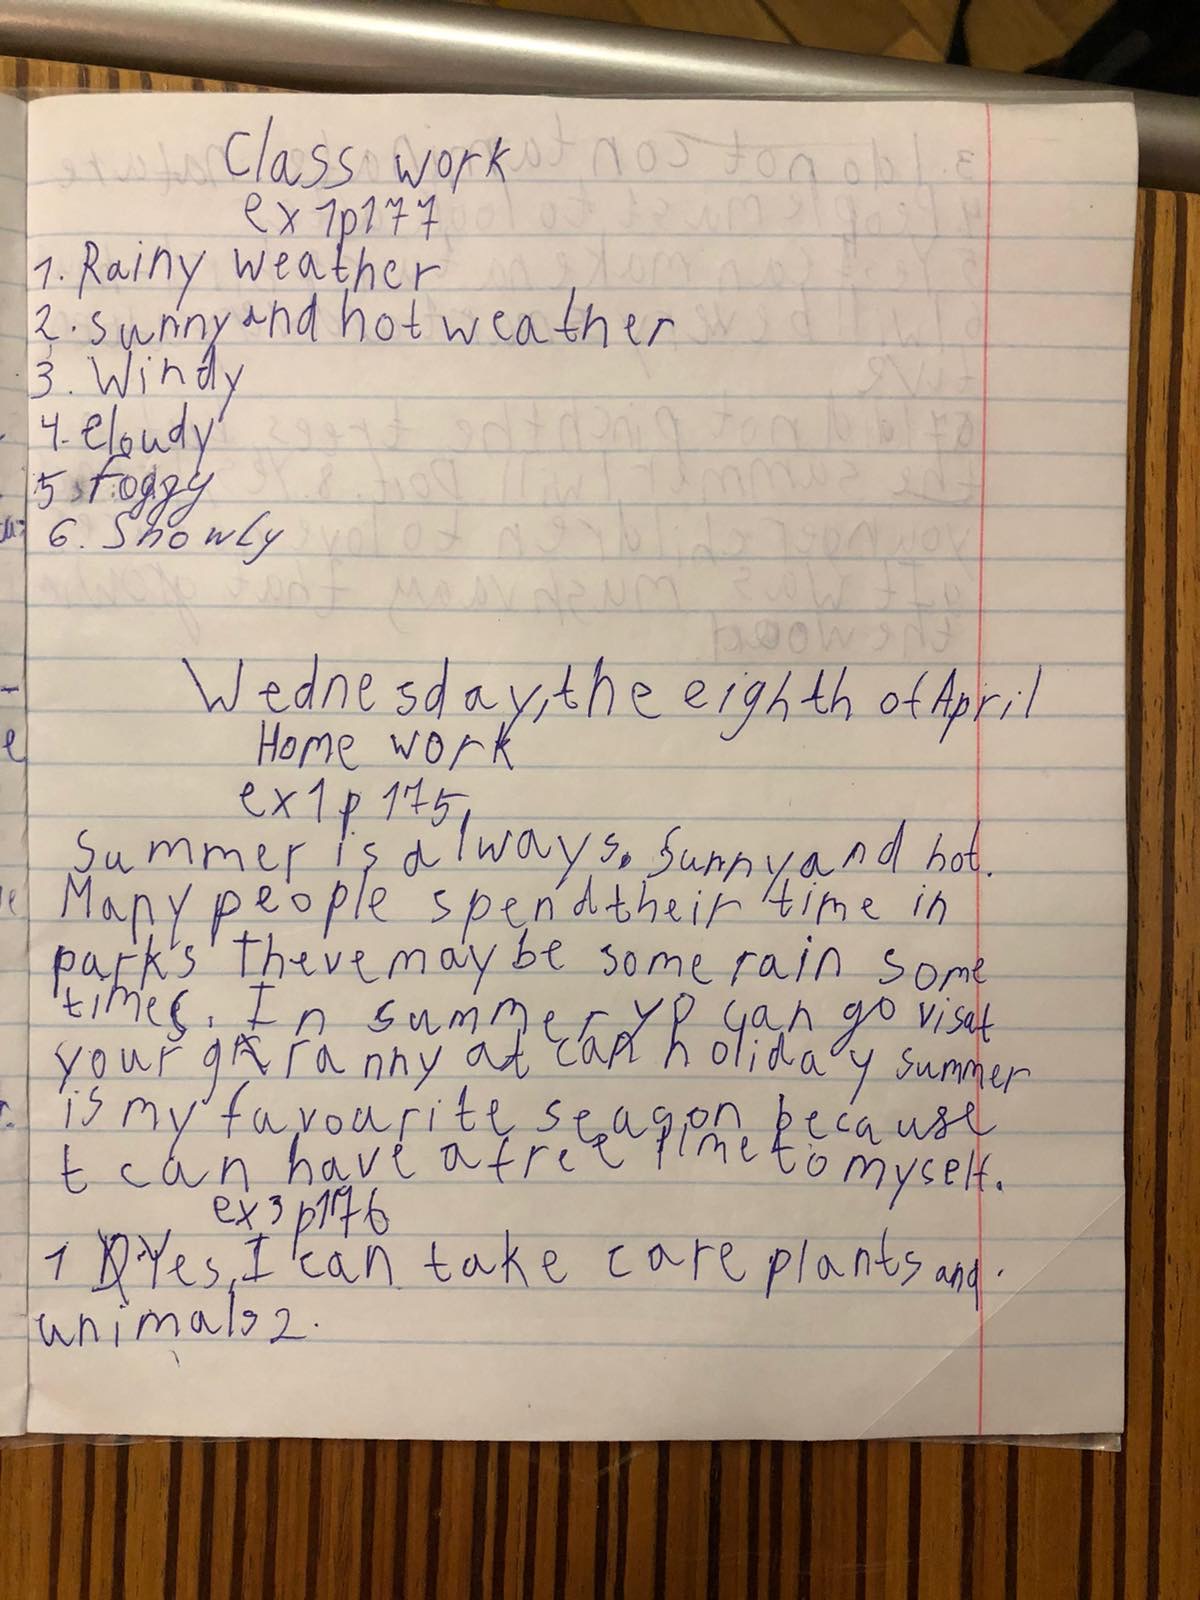 Class work
ex 1p177
1. Rainy weather
2. sunny and hot weather
3. Windy
4. cloudy
5 foggy
6. Snowly
Wednesday, the eighth of April
Home work
ex1p 175
Summer is always. sunny and hot.
Many people spend their time in
parks Theve may be some rain some
times. In summer yo can go visat
your granny at can holiday summer
is my favourite seagon because
t can have a free time to myself.
ex3 p176
1 Yes, I can take care plants and.
animals 2.